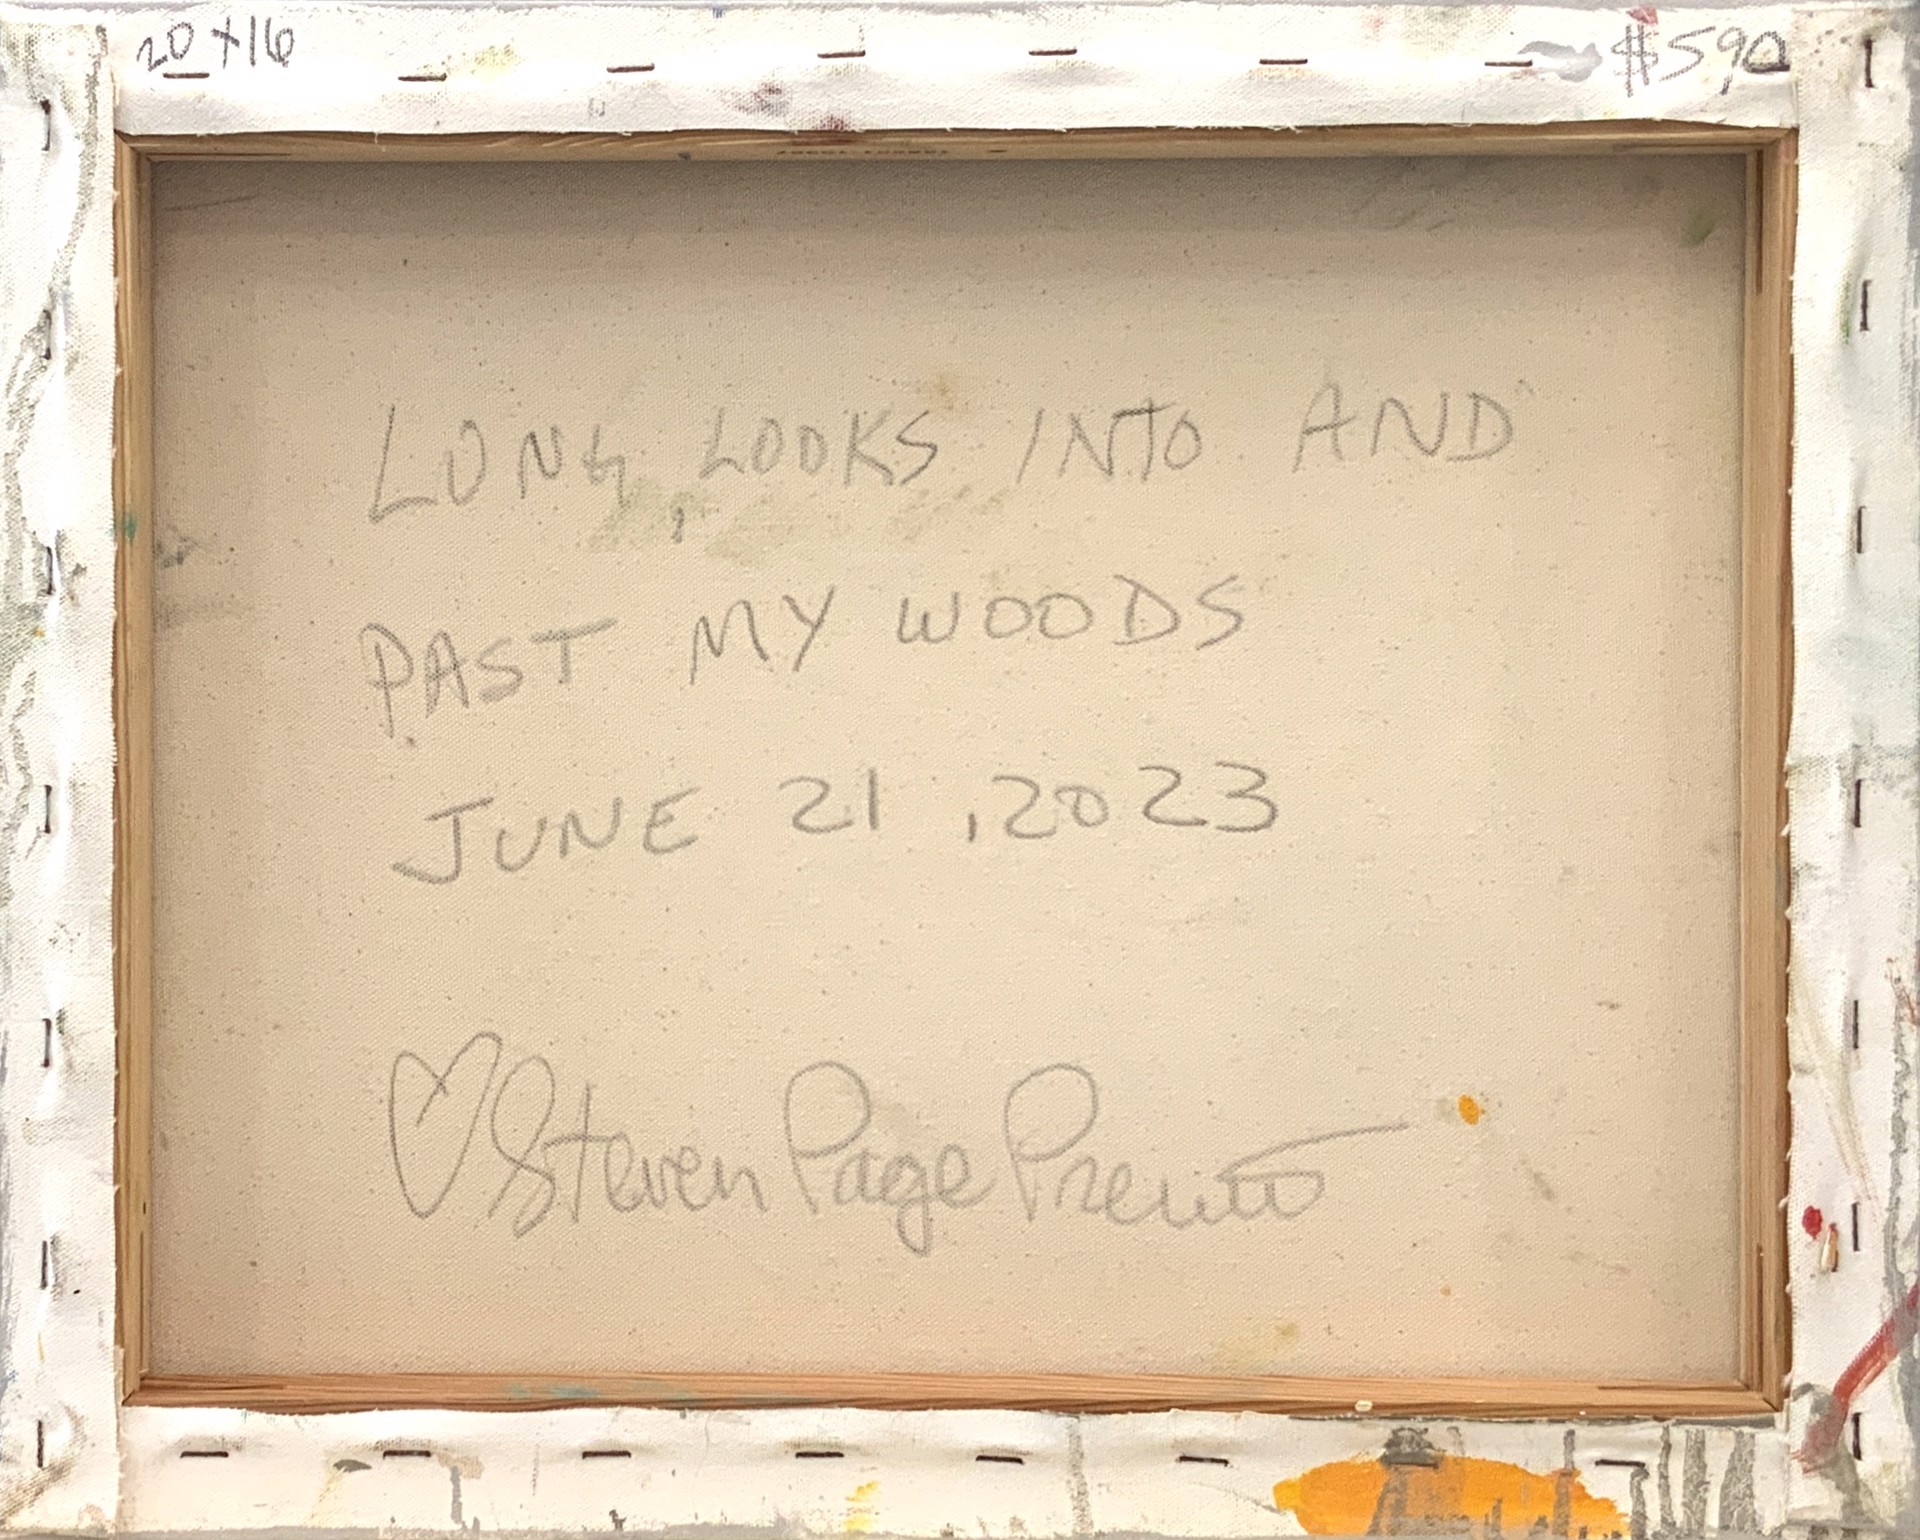 20x16 $590
LONG, LOOKS INTO AND
PAST MY WOODS
JUNE 21, 2023
♡Steven Page Prewitt